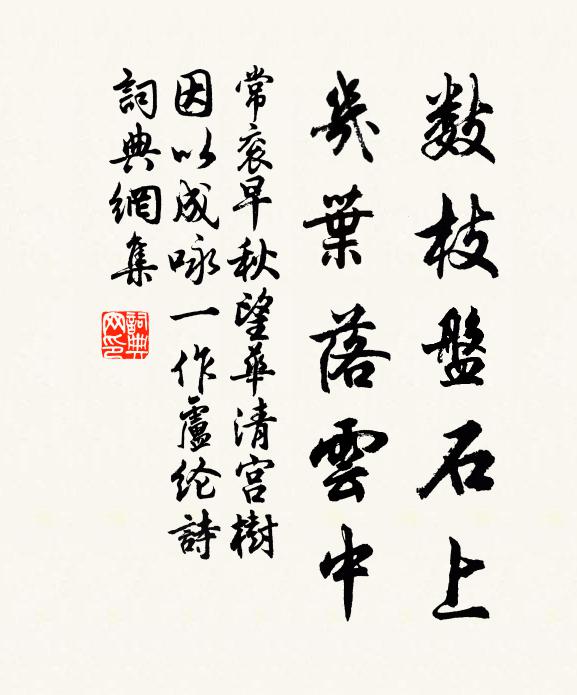 数枝盤石上
幾葉落雲中
常衮早秋望華清宫樹
因以成咏一作盧纶詩
詞典網集
詞典网印